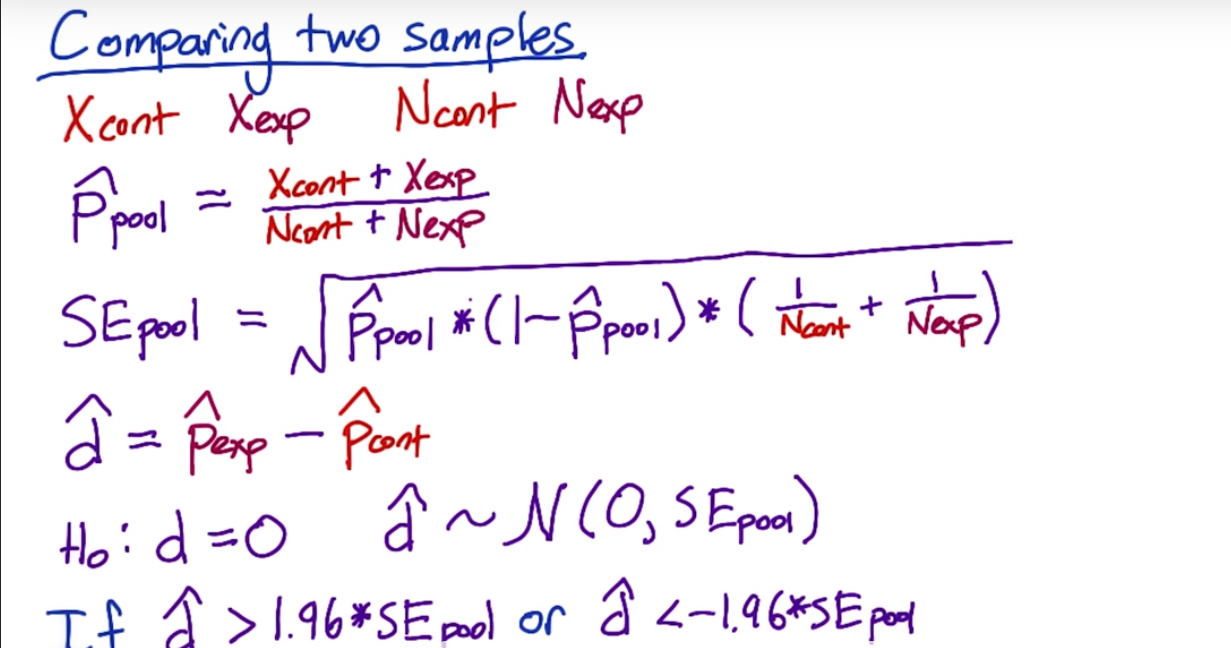 Comparing two samples
Xcont Xexp Ncont Nexp
p̂pool = Xcont + Xexp / Ncont + Nexp
SEpool = √(p̂pool * (1-p̂pool) * (1/Ncont + 1/Nexp))
d̂ = p̂exp - p̂cont
Ho: d = 0 d̂ ~ N(0, SEpool)
If d̂ > 1.96*SEpool or d̂ <-1.96*SEpool